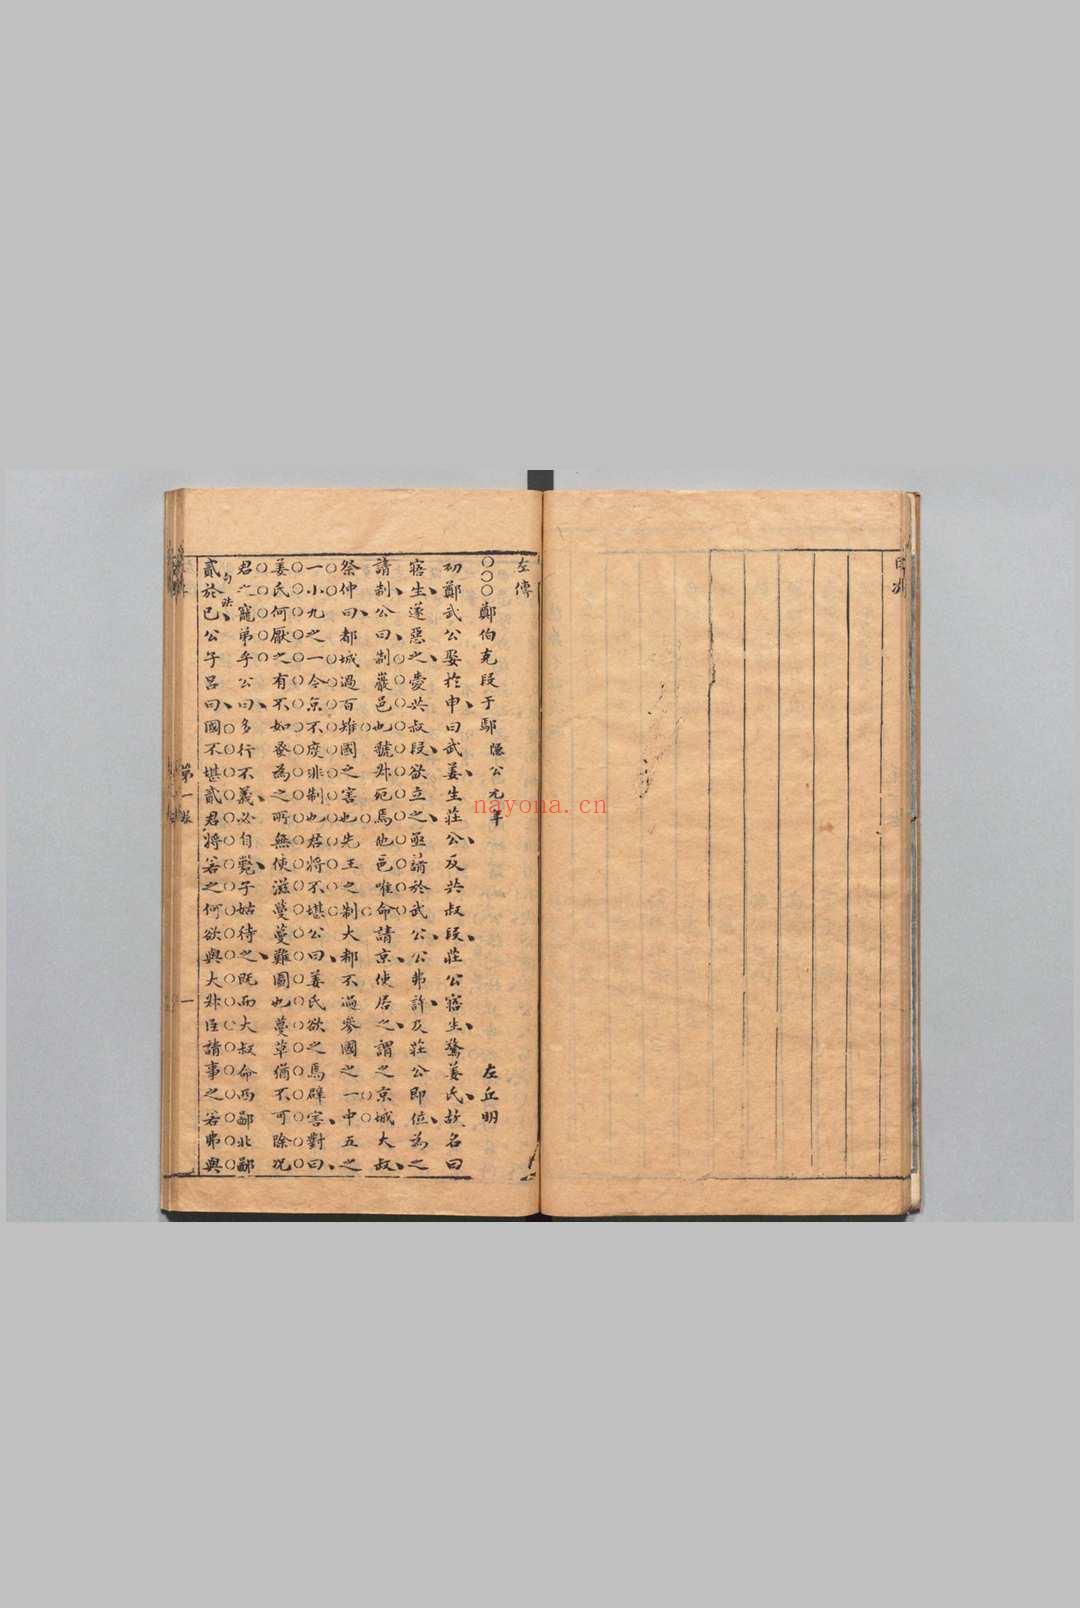 目次
左傳
鄭伯克段于鄢 隱公元年 左丘明
初鄭武公娶於申曰武姜生莊公及共叔段莊公寤生驚姜氏故名曰
寤生遂惡之愛共叔段欲立之亟請於武公公弗許及莊公即位為之
請制公曰制巖邑也虢叔死焉他邑唯命請京使居之謂之京城大叔
祭仲曰都城過百雉國之害也先王之制大都不過參國之一中五之
一小九之一今京不度非制也君將不堪公曰姜氏欲之焉辟害對曰
姜氏何厭之有不如蚤為之所無使滋蔓蔓難圖也蔓草猶不可除况
君之寵弟乎公曰多行不義必自斃子姑待之既而大叔命西鄙北鄙
句法
貳於己公子呂曰國不堪貳君將若之何欲與大叔臣請事之若弗與
第一張
一
nayona.cn